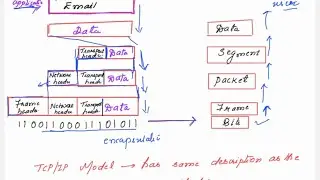 application
Email
Data
Data
Transport header Data
Segment
Network header Transport header Data
Packet
Frame header Network header Transport header Data
Frame
Bits
1100110001110101
encapsulation
TCP/IP Model → has same description as the